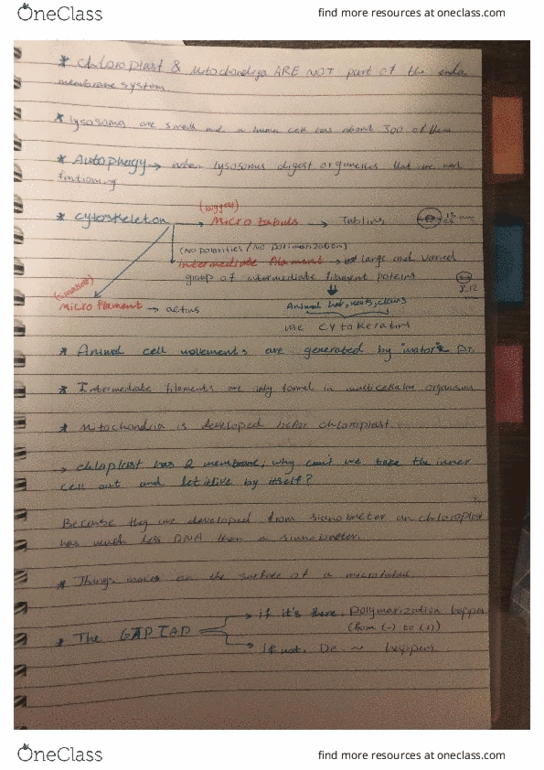 OneClass find more resources at oneclass.com
* Chloroplast & Mitochondria ARE NOT part of the endo
membrane system.
* Lysosoms are small and a human cell has about 300 of them
* Autophagy → when lysosoms digest organelles that are not
* Cytoskeleton → (biggest) Micro tubuls → Tublins
(No polarities / No polimarization)
Intermediate filament → large and varied
group of intermediate filament proteins
(smallest) Micro filament → actins
Animal hair, nails, claws
are cytokeratins
8-12
* Animal cell movements are generated by "motor" Pr.
* Intermediate filaments are only formed in multicellular organism
* Mitochondria is developed before chloroplast.
→ chloplast has 2 membrane; why can't we take the inner
cell out and let it live by itself?
Because they are developed from sianobacter an chloroplast
has much less DNA than a sianobacter.
* Things moves on the surface of a microtubul.
* The GTP CAP → if it's there, Polymarization happen
(from (-) to (+))
→ If not, De ~ happens.
OneClass find more resources at oneclass.com